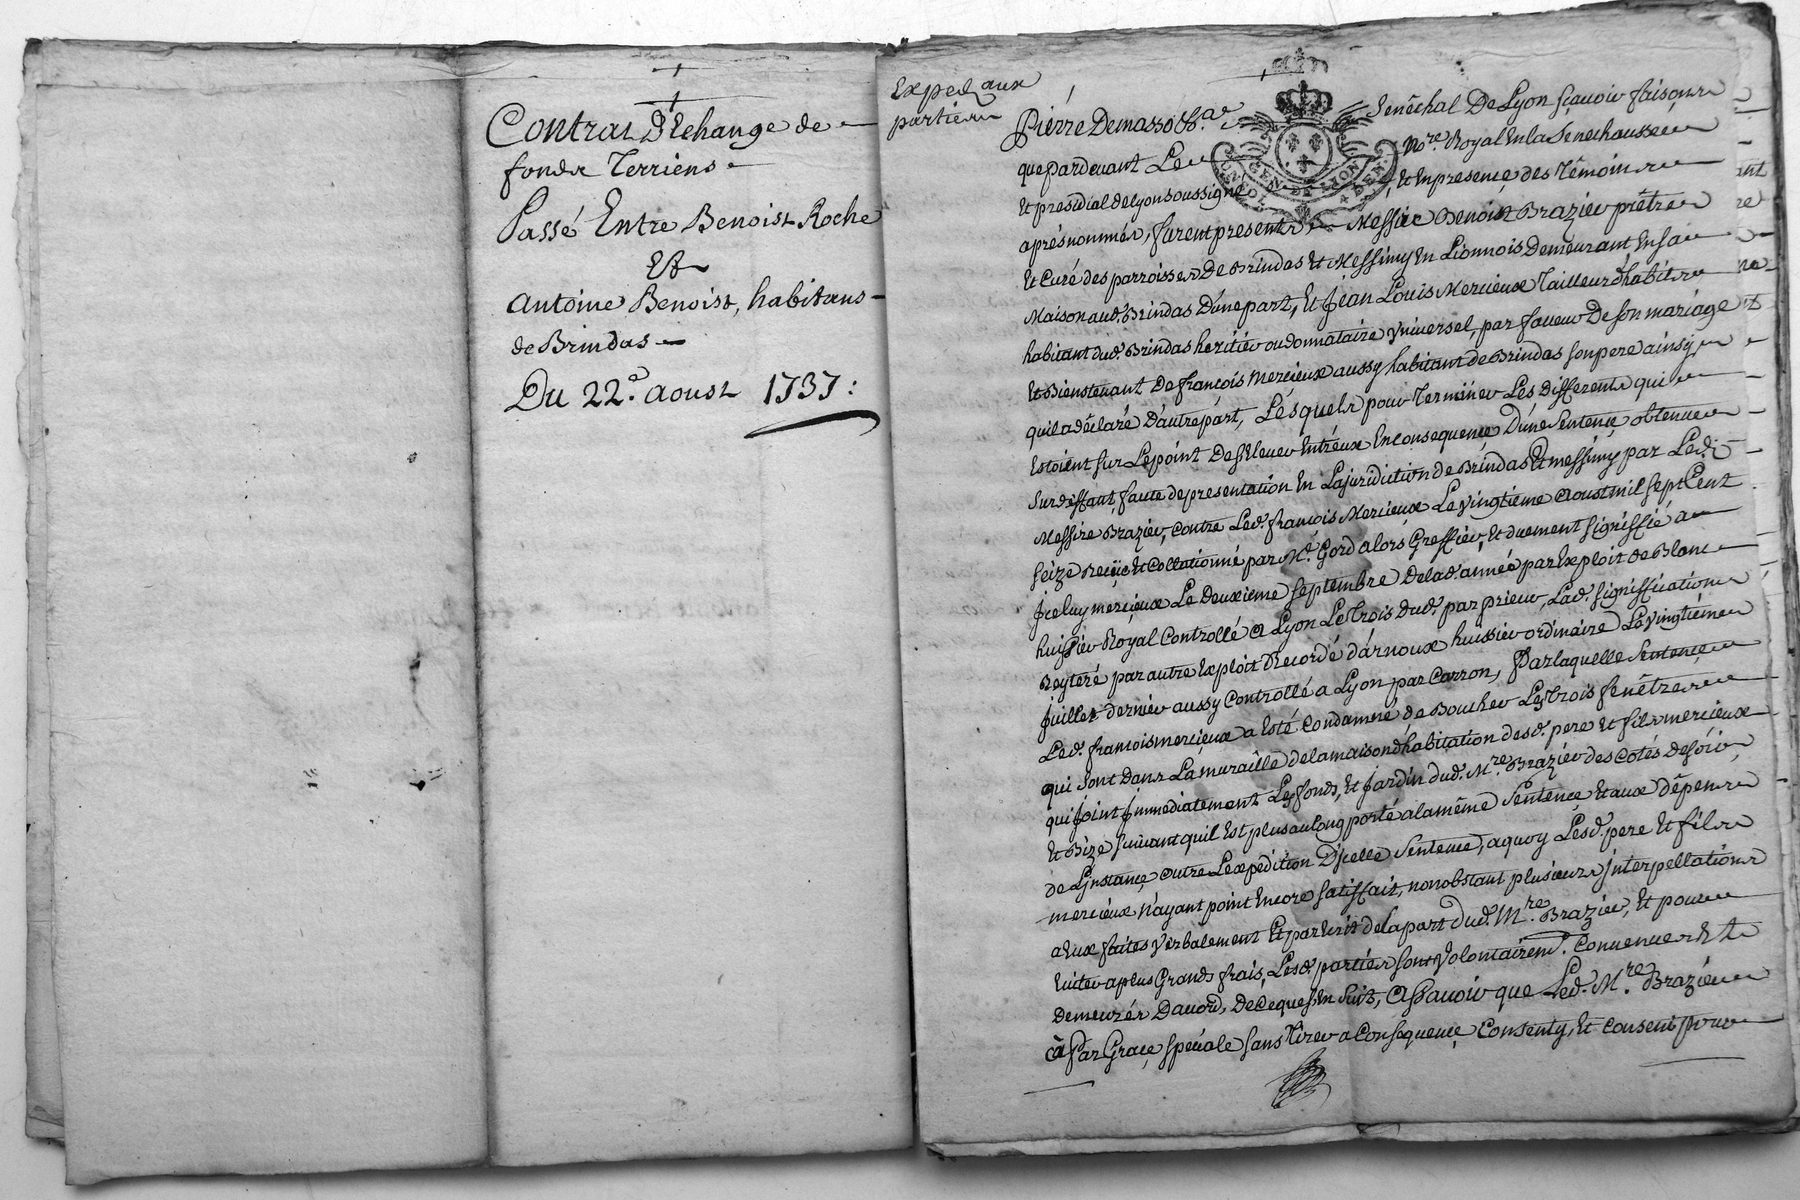 Contrat D'Echange de
fonds Terriens
Passé Entre Benoist Roche
Et
Antoine Benoist, habitans
de Brindas
Du 22.e aoust 1737:
Exped. aux
parties
Pierre Demasso &a. Senêchal De Lyon sçavoir faisons
que pardevant Le No.re Royal En la Senechaussée
Et presidial de Lyon soussigné, Et En presence des Témoins
aprés nommés, furent presents Messire Benoist Brazier prêtre
Et Curé des parroisses De Brindas Et Messimy En Lionnois Demeurant En sa
Maison aud. Brindas D'une part, Et Jean Louis Mercieux Tailleur d'habits
habitant dud. Brindas heritier ou donnataire universel, par faveur De son mariage
Et Bienstenant De françois Mercieux aussy habitant de Brindas son pere ainsy
qu'il a déclaré D'autre part, Lesquels pour Terminer Les differents qui
Estoient sur Le point De s'Elever Entr'eux En consequence D'une Sentence obtenue
sur deffaut faute de presentation En La juridiction de Brindas Et messimy par Led.
Messire Brazier, contre Led. françois Mercieux Le vingtieme aoust mil sept Cent
seize Et Collationné par M.e Gord alors Greffier, Et duement signiffié a
Jceluy mercieux Le deuxieme septembre De lad. année par Exploit de Blanc
huissier Royal Controllé a Lyon Le Trois dud. par prieur, Lad. signiffication
Reyteré par autre Exploit Recordé d'arnoux huissier ordinaire Le vingtième
juillet dernier aussy Controllé a Lyon par Carron, Par laquelle Sentence
Led. françois mercieux a Esté Condamné de Boucher Les Trois fenêtres
qui sont Dans La muraille de la maison d'habitation desd. pere Et fils mercieux
qui joint Jmmediatement Les fonds, Et Jardin dud. M.re Brazier des cotés de soir
Et Bize suivant qu'il Est plus au long porté a la même Sentence Et aux dépens
de L'jnstance outre L'expedition D'jcelle Sentence, a quoy Lesd. pere Et fils
mercieux n'ayant point Encore satisfait, nonobstant plusieurs jnterpellations
a Eux faites verbalement Et par Ecrit de la part dud. M.re Brazier, Et pour
Eviter a plus Grands frais, Lesd. parties sont volontairem.t Convenues Et
Demeurés D'acord, De Ce que s'En suit, Assavoir que Led. M.re Brazier
a par Grace speciale sans Tirer a Consequence Consenty, Et Consent pour